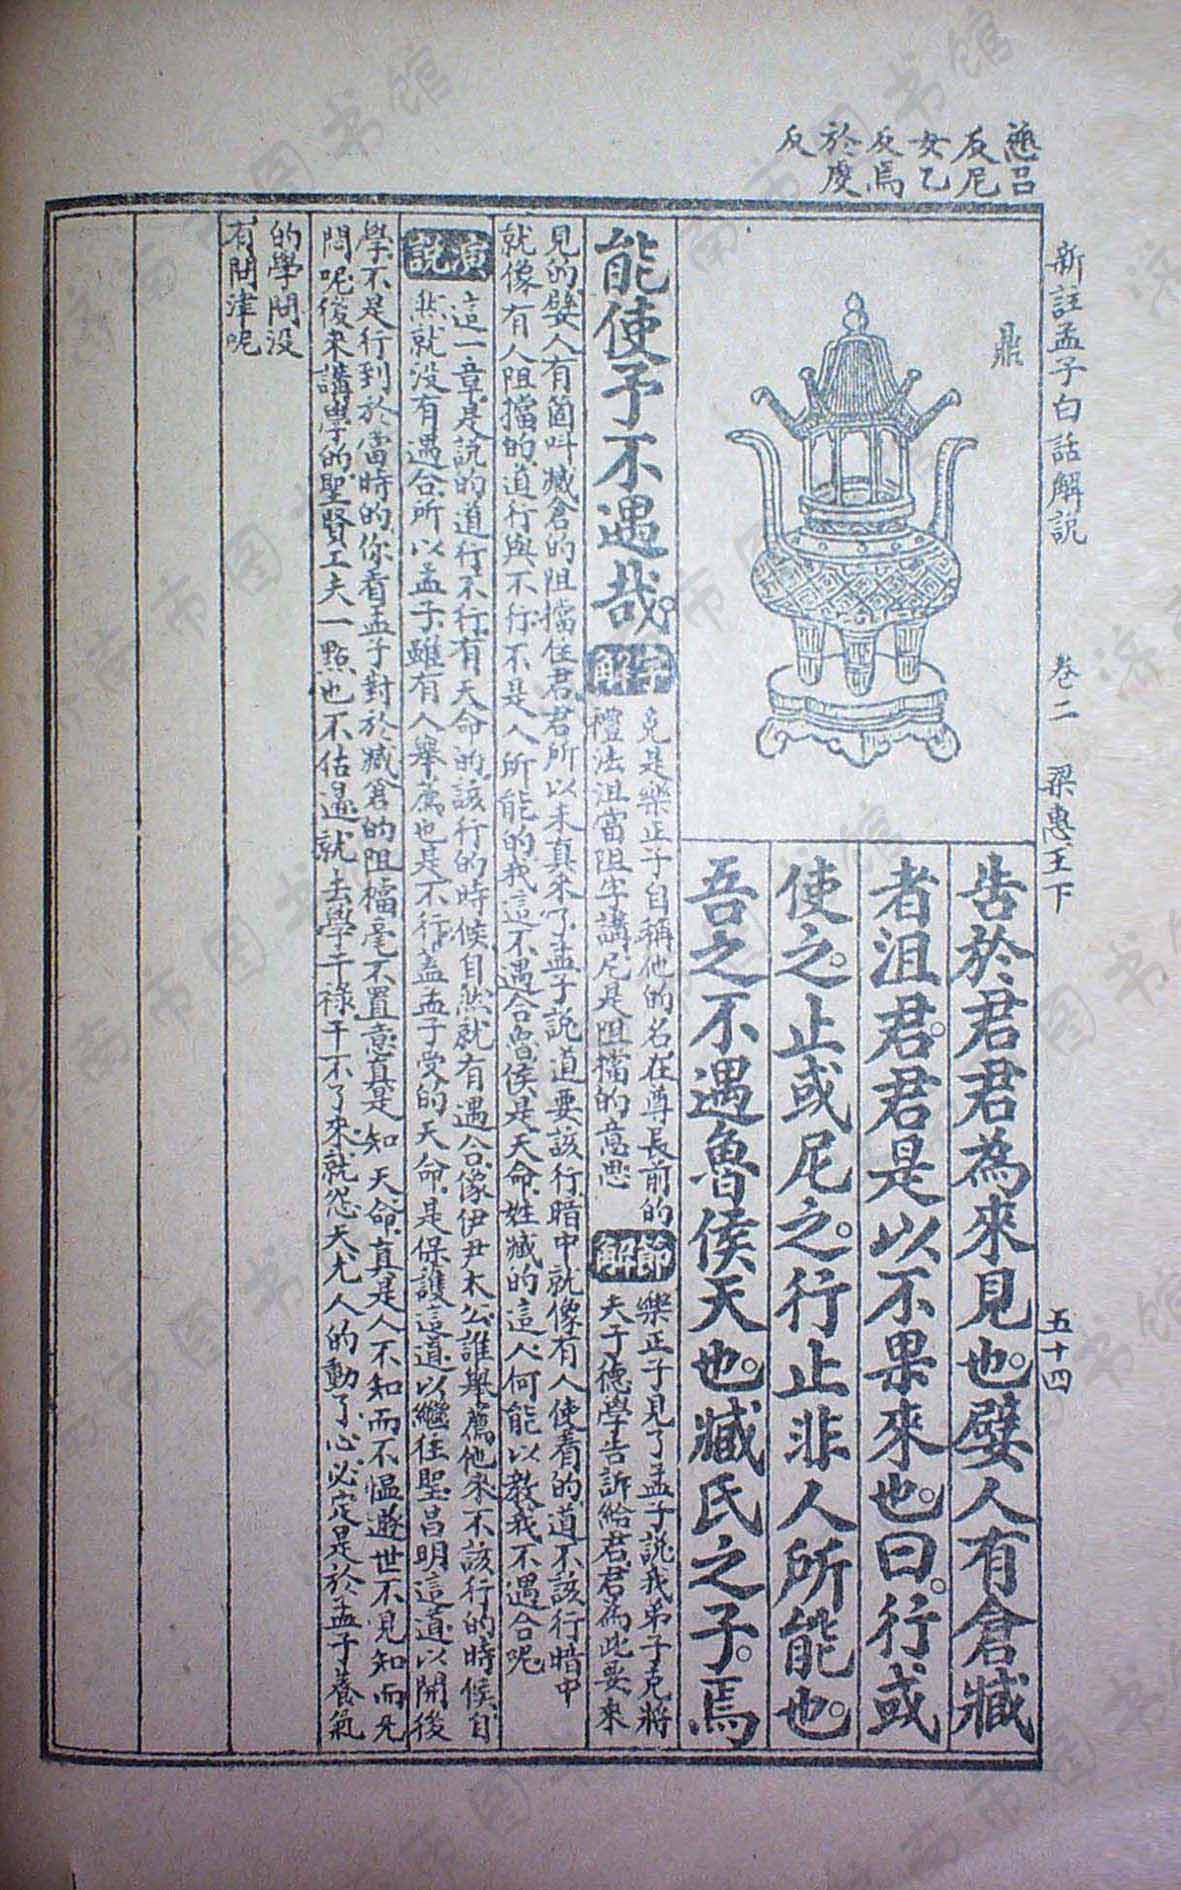 新註孟子白話解説
卷二
梁惠王下
五十四
慈呂
反尼
女乙
反焉
於虔
反
鼎
告於君君為來見也嬖人有倉臧
者沮君君是以不果來也曰行或
使之止或尼之行止非人所能也
吾之不遇魯侯天也臧氏之子焉
能使予不遇哉
字解
克是樂正子自稱他的名在尊長前的
禮法沮當阻字講尼是阻擋的意思
節解
樂正子見了孟子說我弟子克將
夫子德學告訴給君君為此要來
見的嬖人有箇叫臧倉的阻擋住君君所以未真來了孟子說道要該行暗中就像有人使着的道不該行暗中
就像有人阻擋的道行與不行不是人所能的我這不遇合魯侯是天命姓臧的這人何能以教我不遇合呢
演說
這一章是説的道行不行有天命的該行的時候自然就有遇合像伊尹太公誰舉薦他來不該行的時候自
然就没有遇合所以孟子雖有人舉薦也是不行蓋孟子受的天命是保護這道以繼往聖昌明這道以開後
學不是行到於當時的你看孟子對於臧倉的阻擋毫不置意真是知天命真是人不知而不慍遯世不見知而无
悶呢後來講學的聖賢工夫一點也不估量就去學干祿干不了來就怨天尤人的動了心必定是於孟子養氣
的學問没
有問津呢